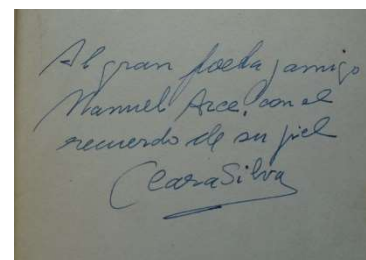 Al gran poeta y amigo
Manuel Arce, con el
recuerdo de su fiel
Clara Silva